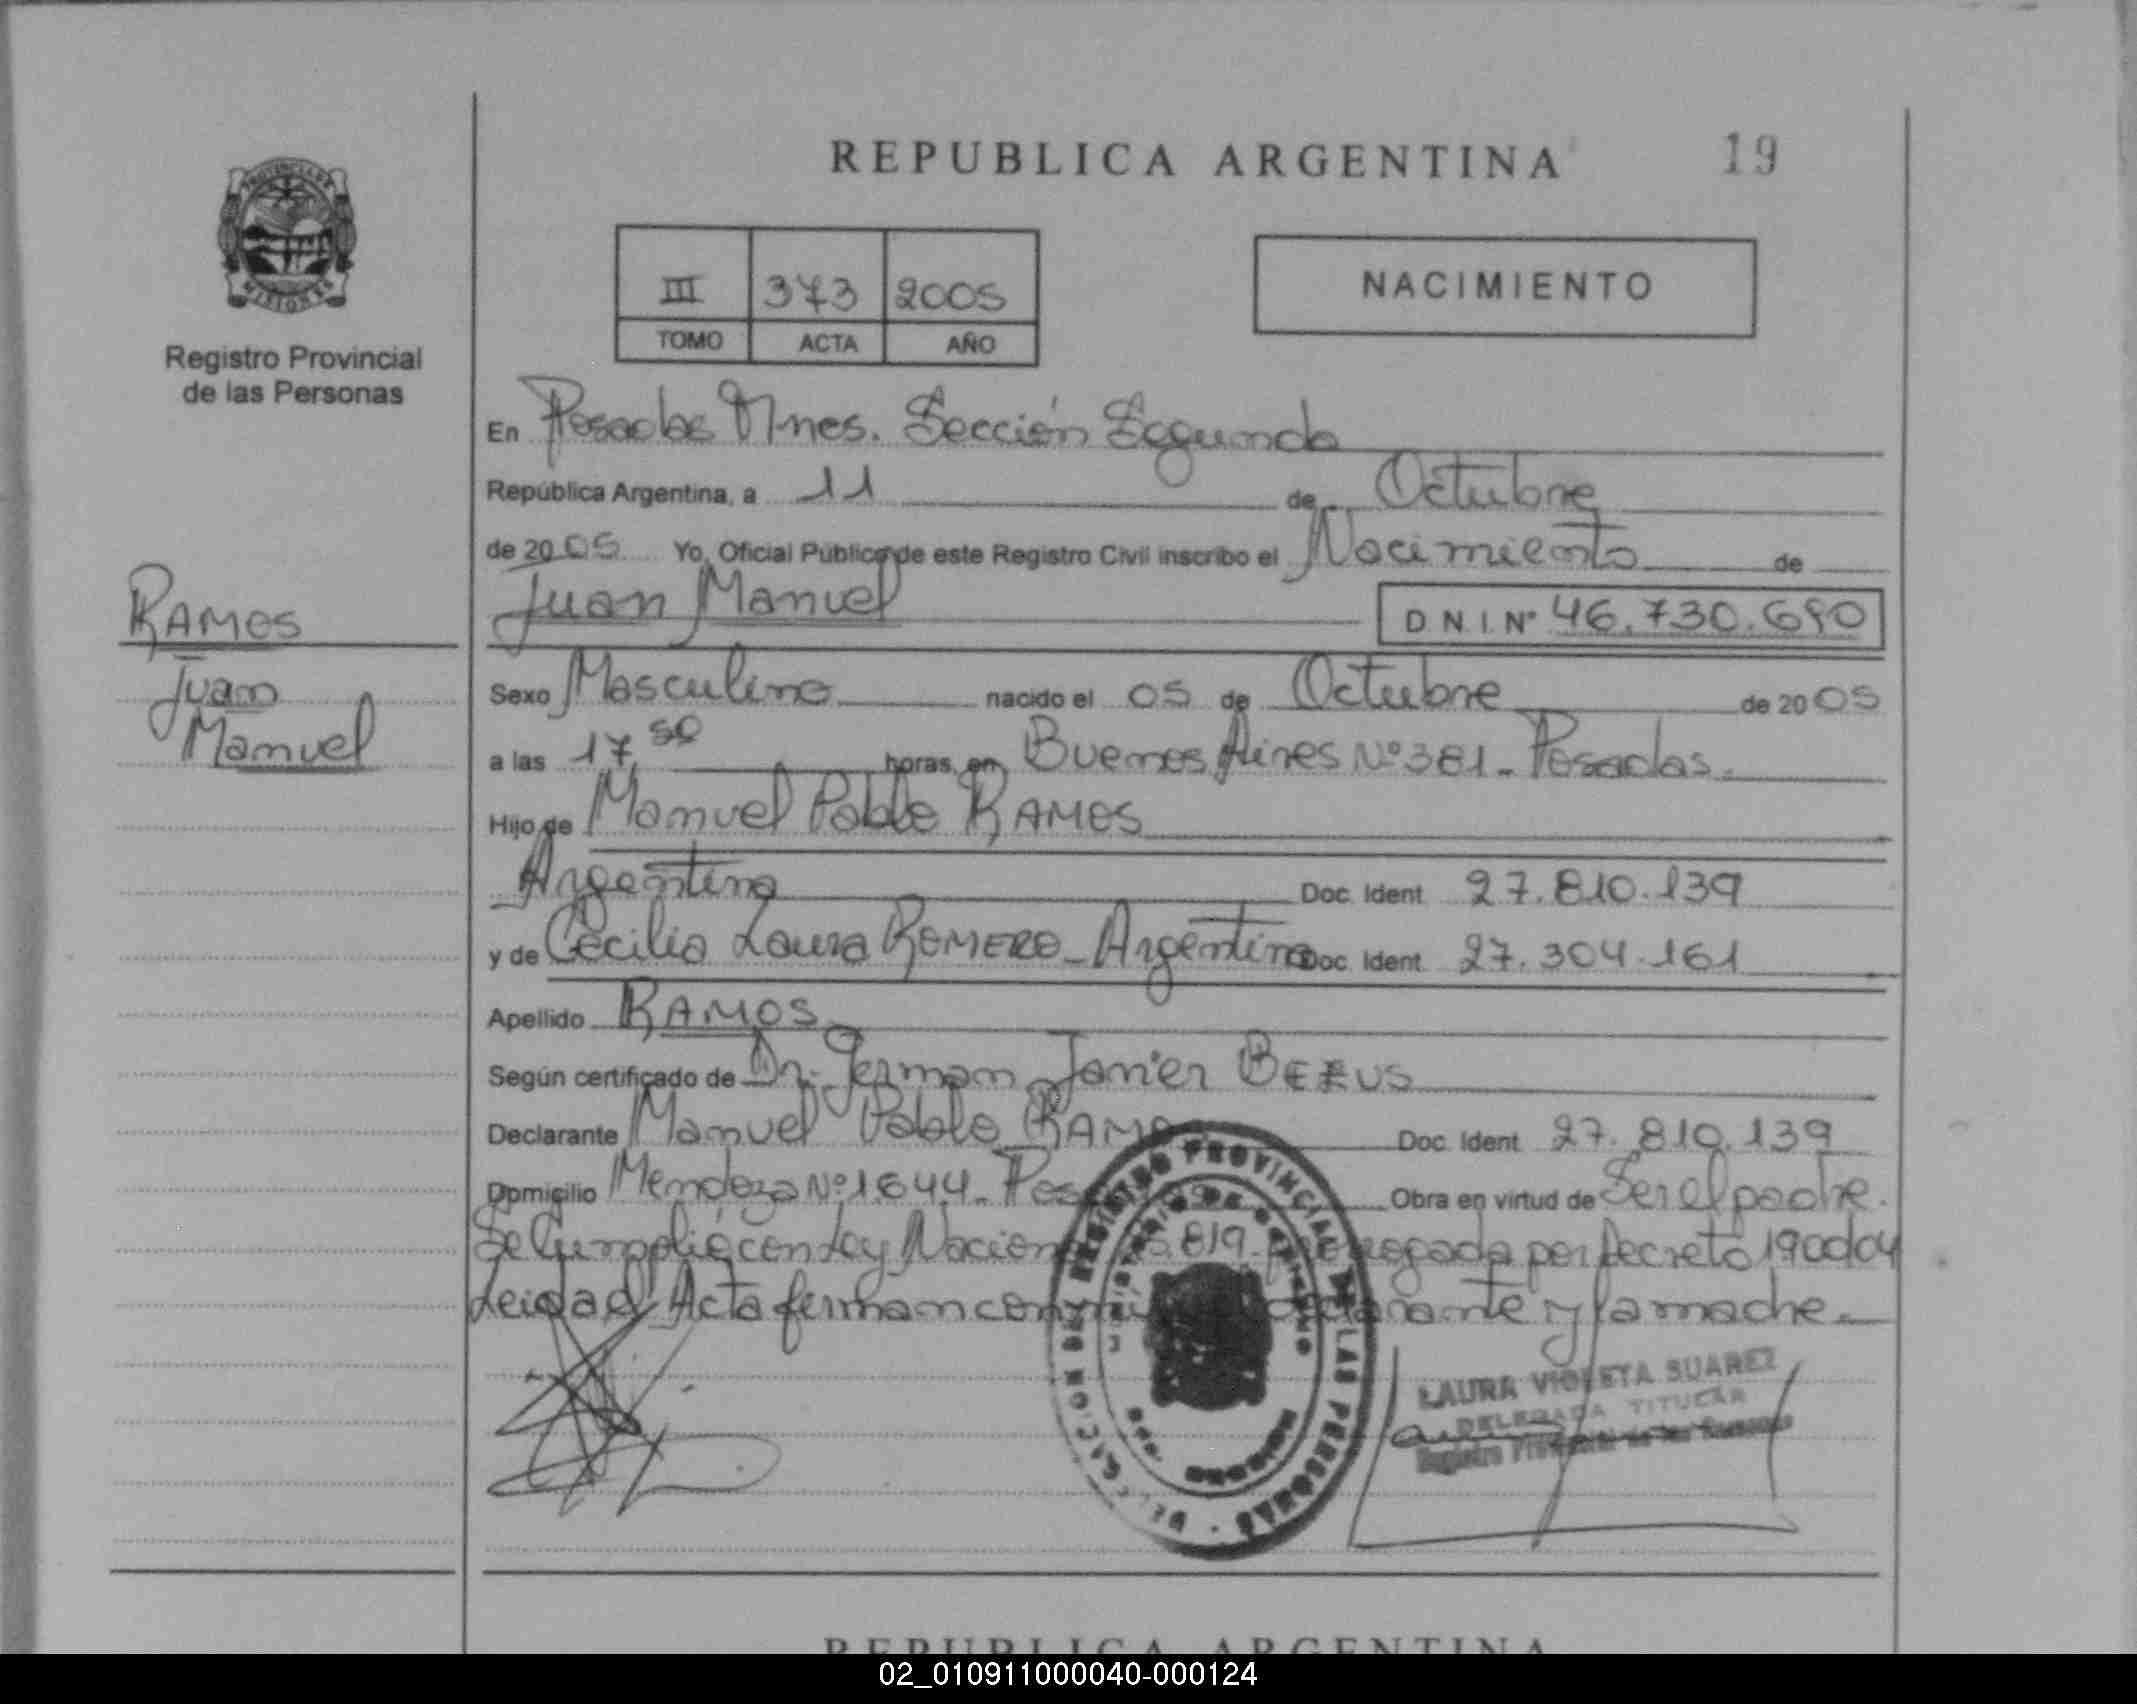 REPUBLICA ARGENTINA 19
III 373 2005
TOMO ACTA AÑO
NACIMIENTO
MISIONES
Registro Provincial
de las Personas
RAMOS
Juan
Manuel
En Posadas Mnes. Sección Segunda
República Argentina, a 11 de Octubre
de 2005 Yo, Oficial Público de este Registro Civil inscribo el Nacimiento de
Juan Manuel D.N.I.Nº 46.730.690
Sexo Masculino nacido el 05 de Octubre de 2005
a las 17 50 horas, en Buenos Aires Nº 381 - Posadas.
Hijo de Manuel Pablo RAMOS
Argentino Doc. Ident. 27.810.139
y de Cecilia Laura ROMERO - Argentina Doc. Ident. 27.304.161
Apellido RAMOS
Según certificado de Dr. German Javier
Declarante Manuel Pablo RAMO Doc. Ident. 27.810.139
Domicilio Mendoza Nº 1644 - Pos Obra en virtud de Ser el padre.
Se Cumplió con Ley Nacion 819 por Decreto
Leida el Acta firman con y la madre.
REGISTRO PROVINCIAL DE LAS PERSONAS
LAURA VIOLETA SUAREZ
DELEGADA TITULAR
Registro Provincial de las Personas
REPUBLICA ARGENTINA
02_010911000040-000124